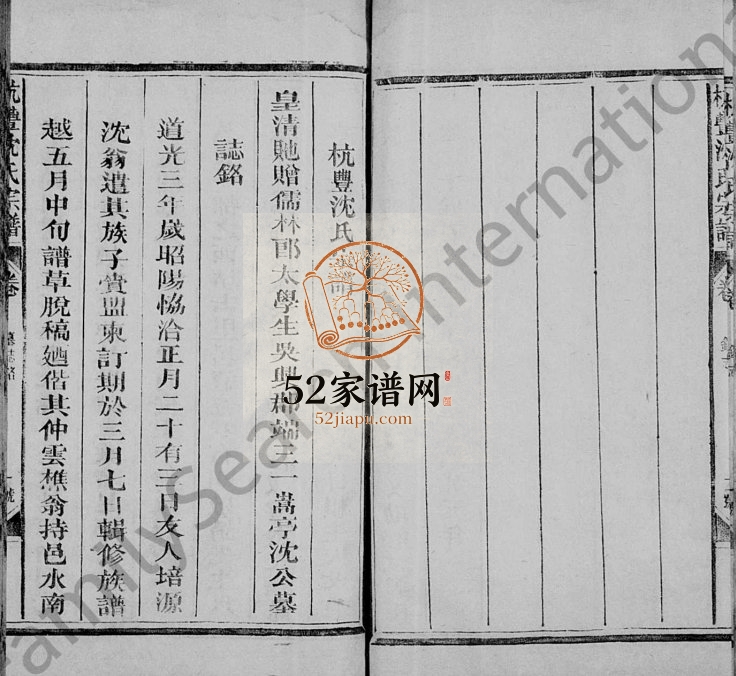 杭豐沈氏宗譜
皇清貤贈儒林郎太學生吳興郡端三一嵩亭沈公墓
誌銘
道光三年歲昭陽協洽正月二十有三日友人培源
沈翁遣其族子賁盟柬訂期於三月七日輯修族譜
越五月中旬譜草脫稿廼偕其仲雲樵翁持邑水南
杭豐沈氏宗譜 卷
墓誌銘
一號
杭豐沈氏宗譜 卷
52家谱网
52jiapu.com
FamilySearch International